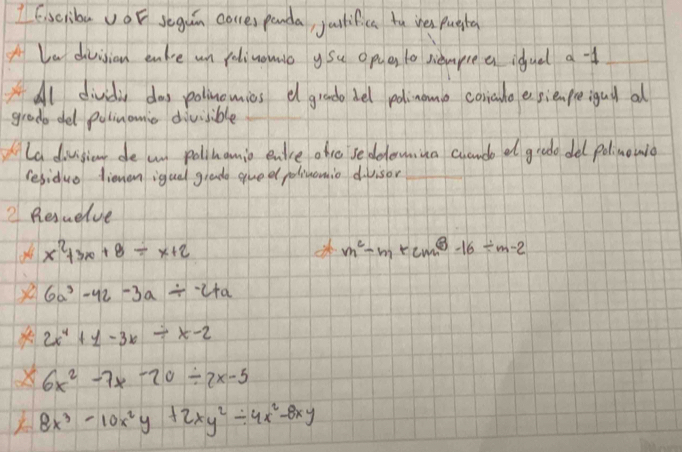 1 Escriba V o F según corresponda, justifica tu respuesta
La division entre un polinomio y su opuesto siempre es igual a -1
Al dividir dos polinomios el grado del polinomio cociente es siempre igual al
grado del polinomio divisible
La division de un polinomio entre otro se determina cuando el grado del polinomio
residuo tienen igual grado que el polinomio divisor
2 Resuelve
x²+3x+8 ÷ x+2
m²-m+2m³-16 ÷m-2
6a³-42-3a ÷ -2+a
2x⁴+1-3x ÷ x-2
6x²-7x-20 ÷2x-5
8x³-10x²y+2xy²÷4x²-8xy